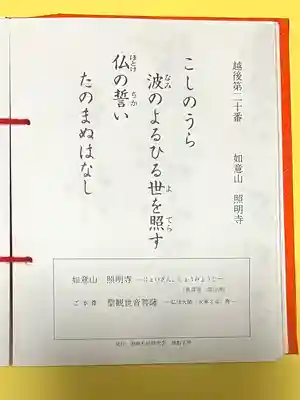 越後第二十番　如意山　照明寺
こしのうら
波のよるひる世を照す
なみ よ てら
仏の誓い
ほとけ ちか
たのまぬはなし
如意山　照明寺 ―にょいざん、しょうみょうじ―
ご本尊　聖観世音菩薩